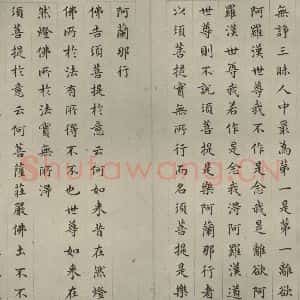 無諍三昧人中最為第一是第一離欲
阿羅漢世尊我不作是念我是離欲阿
羅漢世尊我若作是念我得阿羅漢道
世尊則不說須菩提是樂阿蘭那行者
以須菩提實無所行而名須菩提是樂
阿蘭那行
佛告須菩提於意云何如來昔在然燈
佛所於法有所得不不也世尊如來在
然燈佛所於法實無所得
須菩提於意云何菩薩莊嚴佛土不不
Shufawang.CN